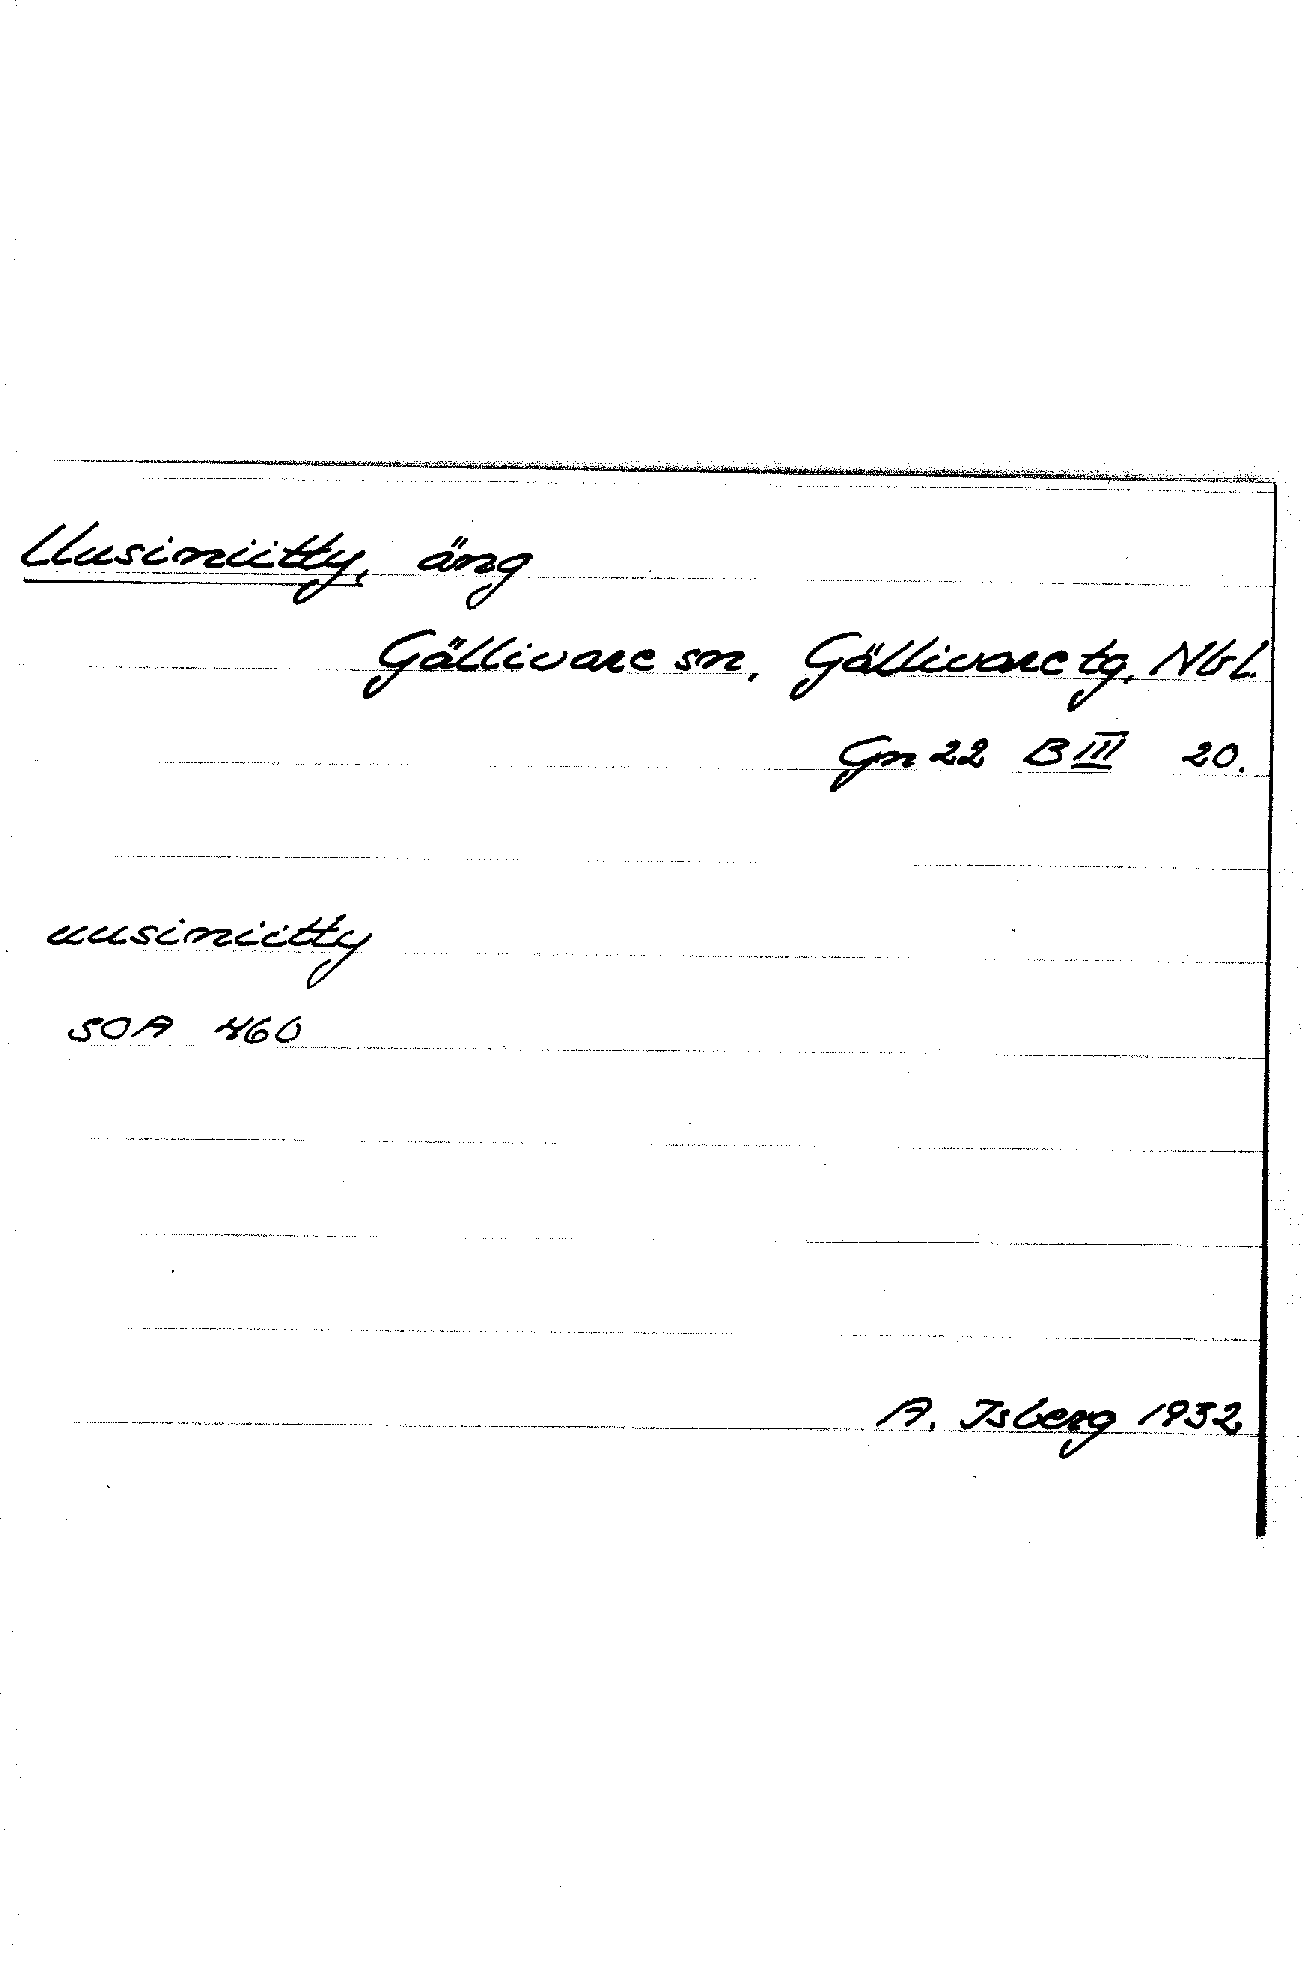 Uusiniitty, äng
Gällivare sn, Gällivare tg, Nbl.
Gn 22 B III 20.
uusiniitty
SOA 460
A. Isberg 1932